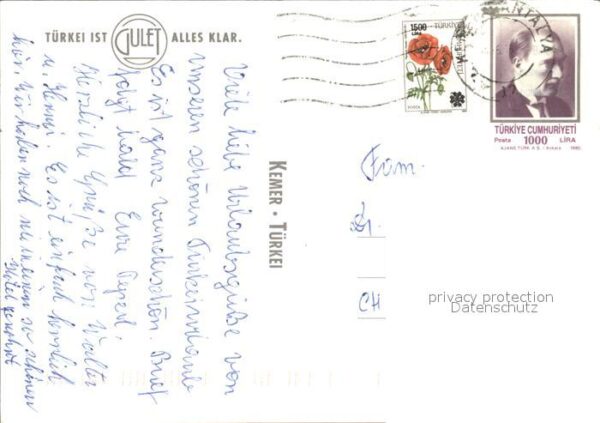 TÜRKEI IST GULET ALLES KLAR.
1500
LİRA
TÜRKİYE
POSTA
ANTALYA
TÜRKİYE CUMHURİYETİ
Posta 1000 LİRA
AJANS-TÜRK A.S. - Ankara 1990
KEMER · TÜRKEI
Viele liebe Urlaubsgrüße von
unserem schönen Türkeiurlaub
Es ist ganz wunderschön. Brief
folgt bald Eure
Herzliche Grüße von Walter
u. Es ist einfach herrlich
hier. Wir haben noch nie in einem so schönen
Hotel gewohnt
Fam.
CH
privacy protection
Datenschutz